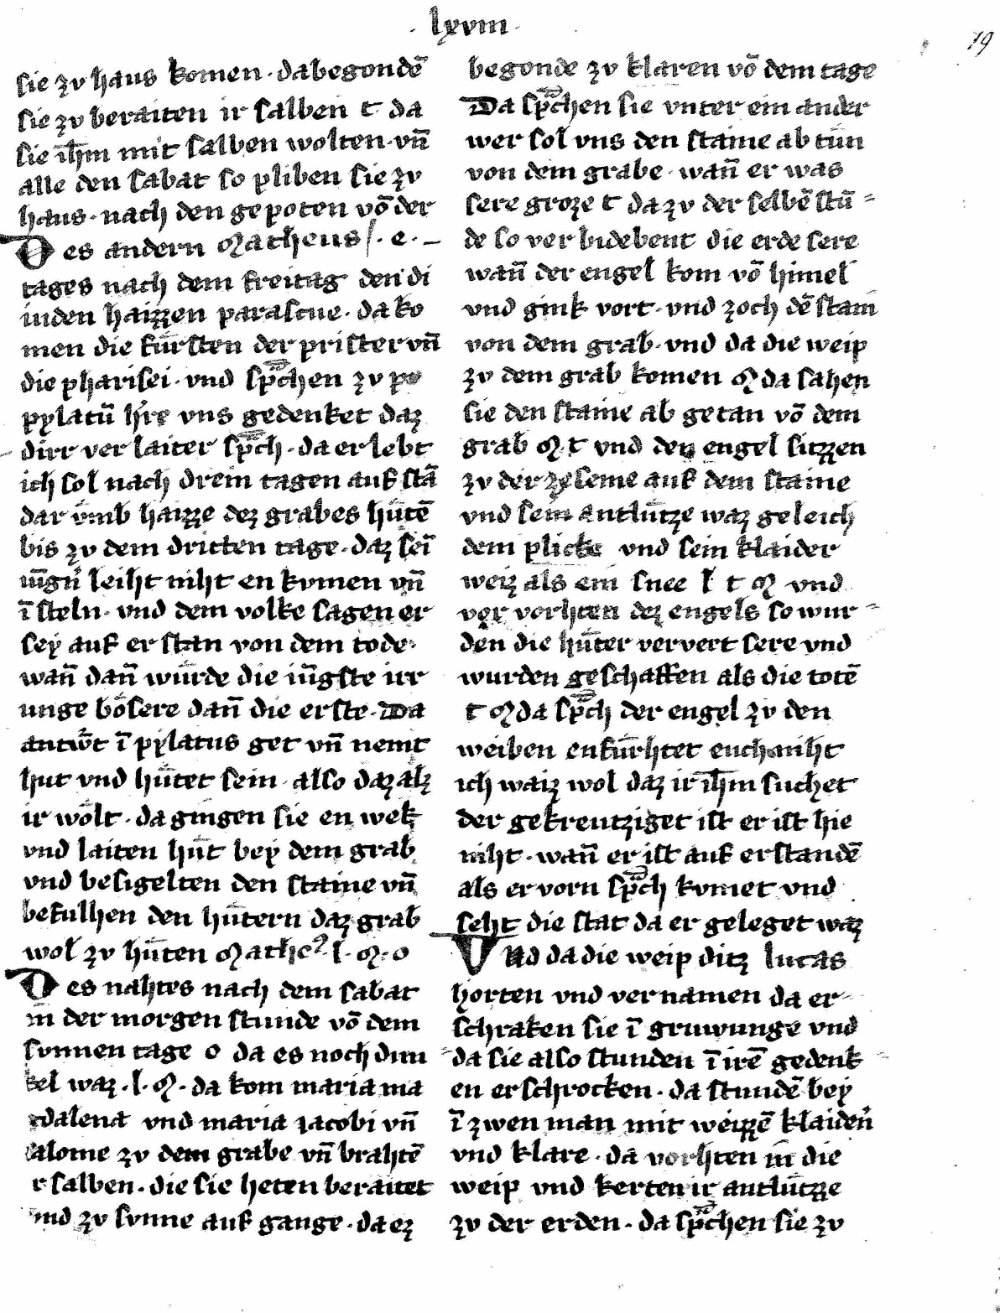 · lxviii ·
79
sie zv haus komen · da begondē
sie zv beraiten ir salben t da
sie ih̄m mit salben wolten · vn̄
alle den sabat so pliben sie zv
haus · nach den gepoten vō der
Des andern Matheus · e · –
tages nach dem freitag den di
iuden haizzen parascue · da ko
men die fürsten der prister vn̄
die pharisei · vnd sp̄chen zv
pylatū h're vns gedenket daz
dirr ver laiter sp̄ch · da er lebt
ich sol nach drein tagen auf stā
dar vmb haizze dez grabes hütē
bis zv dem dritten tage · daz sei
iu̅g'n leiht niht en kvmen vn̄
ī steln · vnd dem volke sagen er
sey auf er stan von dem tode ·
wan̄ dan̄ würde die iu̅gste irr
unge bösere dan̄ die erste · Da
antw't ī pylatus get vn̄ nemt
hut vnd hütet sein · also daz alz
ir wölt · da gingen sie en wek
vnd laiten hüt bey dem grab
vnd besigelten den staine vn̄
befulhen den hütern daz grab
wol zv hüten Mathe9 · l · M · o
Des nahtes nach dem sabat
in der morgen stunde vō dem
svnnen tage o da es noch dun
kel waz · l · M · da kom maria ma
gdalena vnd maria iacobi vn̄
salome zv dem grabe vn̄ brahtē
ir salben · die sie heten beraitet
vnd zv svnne auf gange · da ez
begonde zv klaren vō dem tage
Da sp̄chen sie vnter ein ander
wer sol vns den staine ab tün
von dem grabe · wan̄ er was
sere groze t da zv der selbē stū
de so ver bidebent die erde sere
wan̄ der engel kom vō himel
vnd gink vort · vnd zoch dē stain
von dem grab · vnd da die weip
zv dem grab komen M da sahen
sie den staine ab getan vō dem
grab M · t vnd den engel sitzzen
zv der zeseme auf dem staine
vnd sein antlütze waz geleich
dem plicke vnd sein klaider
weiz als ein snee l t M vnd
vor vorhten dez engels so wur
den die hüter ververt sere vnd
wurden geschaffen als die totē
t M da sp̄ch der engel zv den
weiben enfürhtet euch niht
ich waiz wol daz ir ih̄m suchet
der gekreutziget ist er ist hie
niht · wan̄ er ist auf erstandē
als er vorn sp̄ch kvmet vnd
seht die stat da er geleget waz
Vnd da die weip ditz lucas
horten vnd vernamen da er
schraken sie ī gruwunge vnd
da sie also stunden ī irē gedenk
en erschrocken · da stundē bey
ī zwen man mit weizzē klaiden'
vnd klare · da vorhten in die
weip vnd kerten ir antlützze
zv der erden · da sp̄chen sie zv